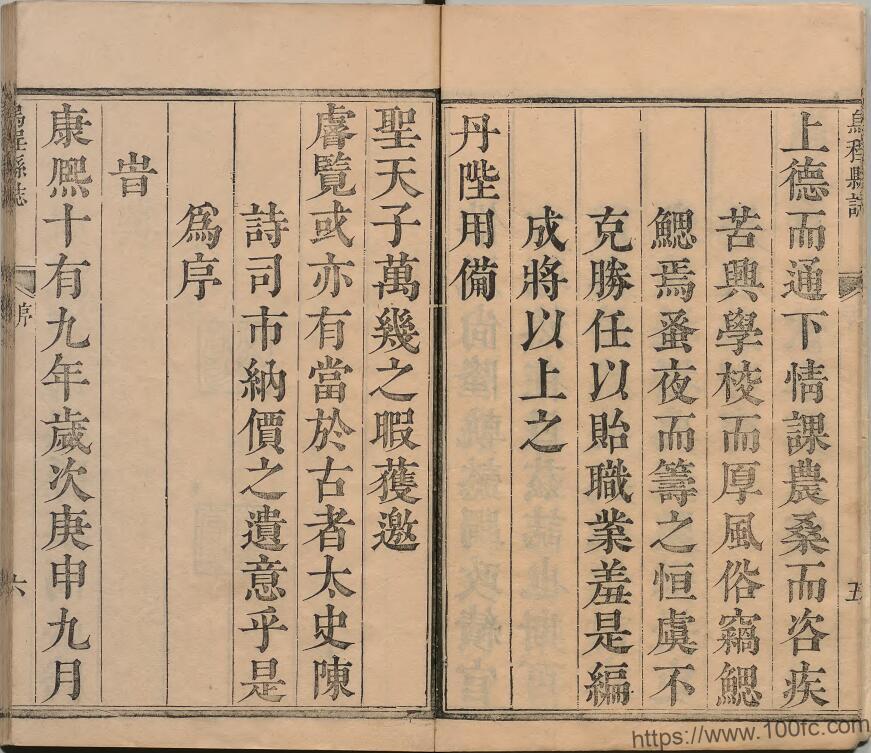 上德而通下情課農桑而咨疾
苦興學校而厚風俗竊鰓
鰓焉蚤夜而籌之恒虞不
克勝任以貽職業羞是編
成將以上之
丹陛用備
聖天子萬幾之暇蒦邀
睿覽或亦有當於古者太史陳
詩司市納價之遺意乎是
為序
旹
康熙十有九年歲次庚申九月
烏程縣誌
五
烏程縣誌
序
六
https://www.100fc.com